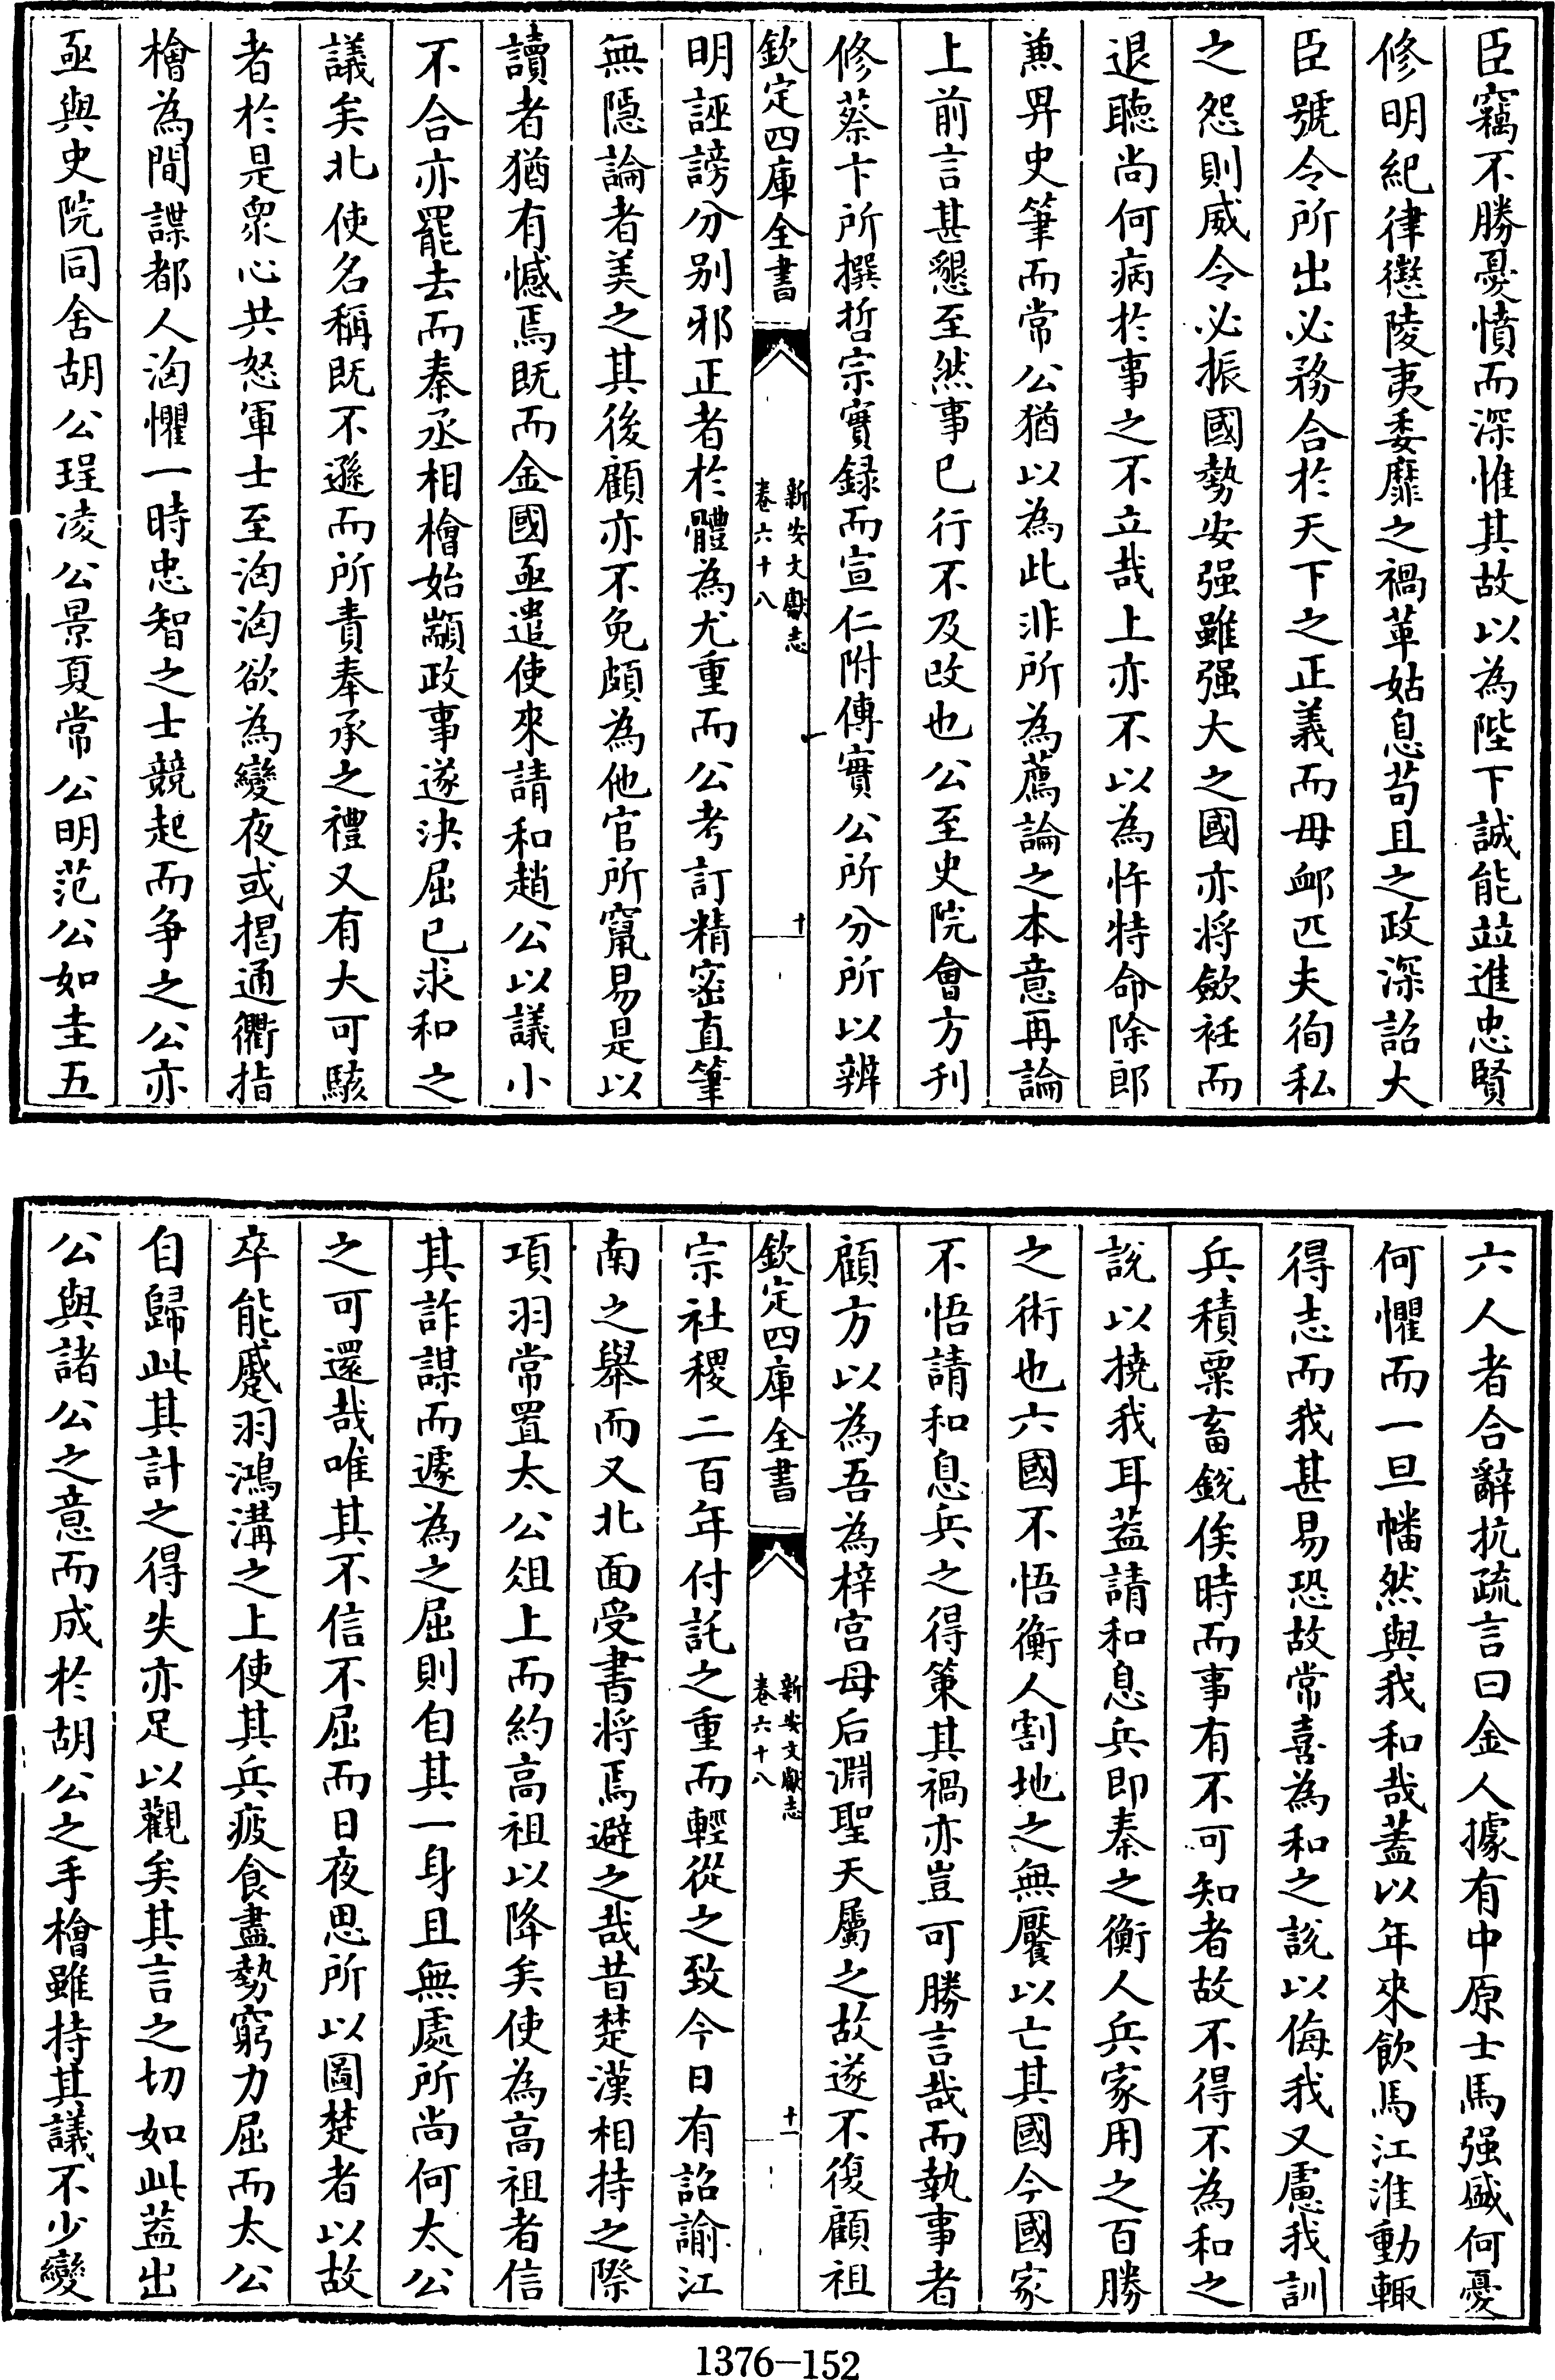 臣竊不勝憂憤而深惟其故以為陛下誠能並進忠賢
修明紀律懲陵夷委靡之禍革姑息苟且之政深詔大
臣號令所出必務合於天下之正義而毋䘏匹夫徇私
之怨則威令必振國勢安强雖强大之國亦將歛衽而
退聽尚何病於事之不立哉上亦不以為忤特命除郎
兼畀史筆而常公猶以為此非所為薦論之本意再論
上前言甚懇至然事已行不及改也公至史院會方刊
修蔡卞所撰哲宗實録而宣仁附傳實公所分所以辨
欽定四庫全書
新安文獻志
卷六十八
十
明誣謗分别邪正者於體為尤重而公考訂精密直筆
無隱論者美之其後顧亦不免頗為他官所竄易是以
讀者猶有憾焉既而金國亟遣使來請和趙公以議小
不合亦罷去而秦丞相檜始顓政事遂決屈已求和之
議矣北使名稱既不遜而所責奉承之禮又有大可駭
者於是衆心共怒軍士至洶洶欲為變夜或揭通衢指
檜為間諜都人洶懼一時忠智之士競起而争之公亦
亟與史院同舍胡公珵凌公景夏常公明范公如圭五
六人者合辭抗疏言曰金人據有中原士馬强盛何憂
何懼而一旦幡然與我和哉蓋以年來飲馬江淮動輙
得志而我甚易恐故常喜為和之説以侮我又慮我訓
兵積粟畜鋭俟時而事有不可知者故不得不為和之
説以撓我耳葢請和息兵即秦之衡人兵家用之百勝
之術也六國不悟衡人割地之無饜以亡其國今國家
不悟請和息兵之得策其禍亦豈可勝言哉而執事者
顧方以為吾為梓宫母后淵聖天屬之故遂不復顧祖
欽定四庫全書
新安文獻志
卷六十八
十一
宗社稷二百年付託之重而輕從之致今日有詔諭江
南之舉而又北面受書將焉避之哉昔楚漢相持之際
項羽常置太公俎上而約高祖以降矣使為高祖者信
其詐謀而遽為之屈則自其一身且無處所尚何太公
之可還哉唯其不信不屈而日夜思所以圖楚者以故
卒能蹙羽鴻溝之上使其兵疲食盡勢窮力屈而太公
自歸此其計之得失亦足以觀矣其言之切如此葢出
公與諸公之意而成於胡公之手檜雖持其議不少變
1376—152